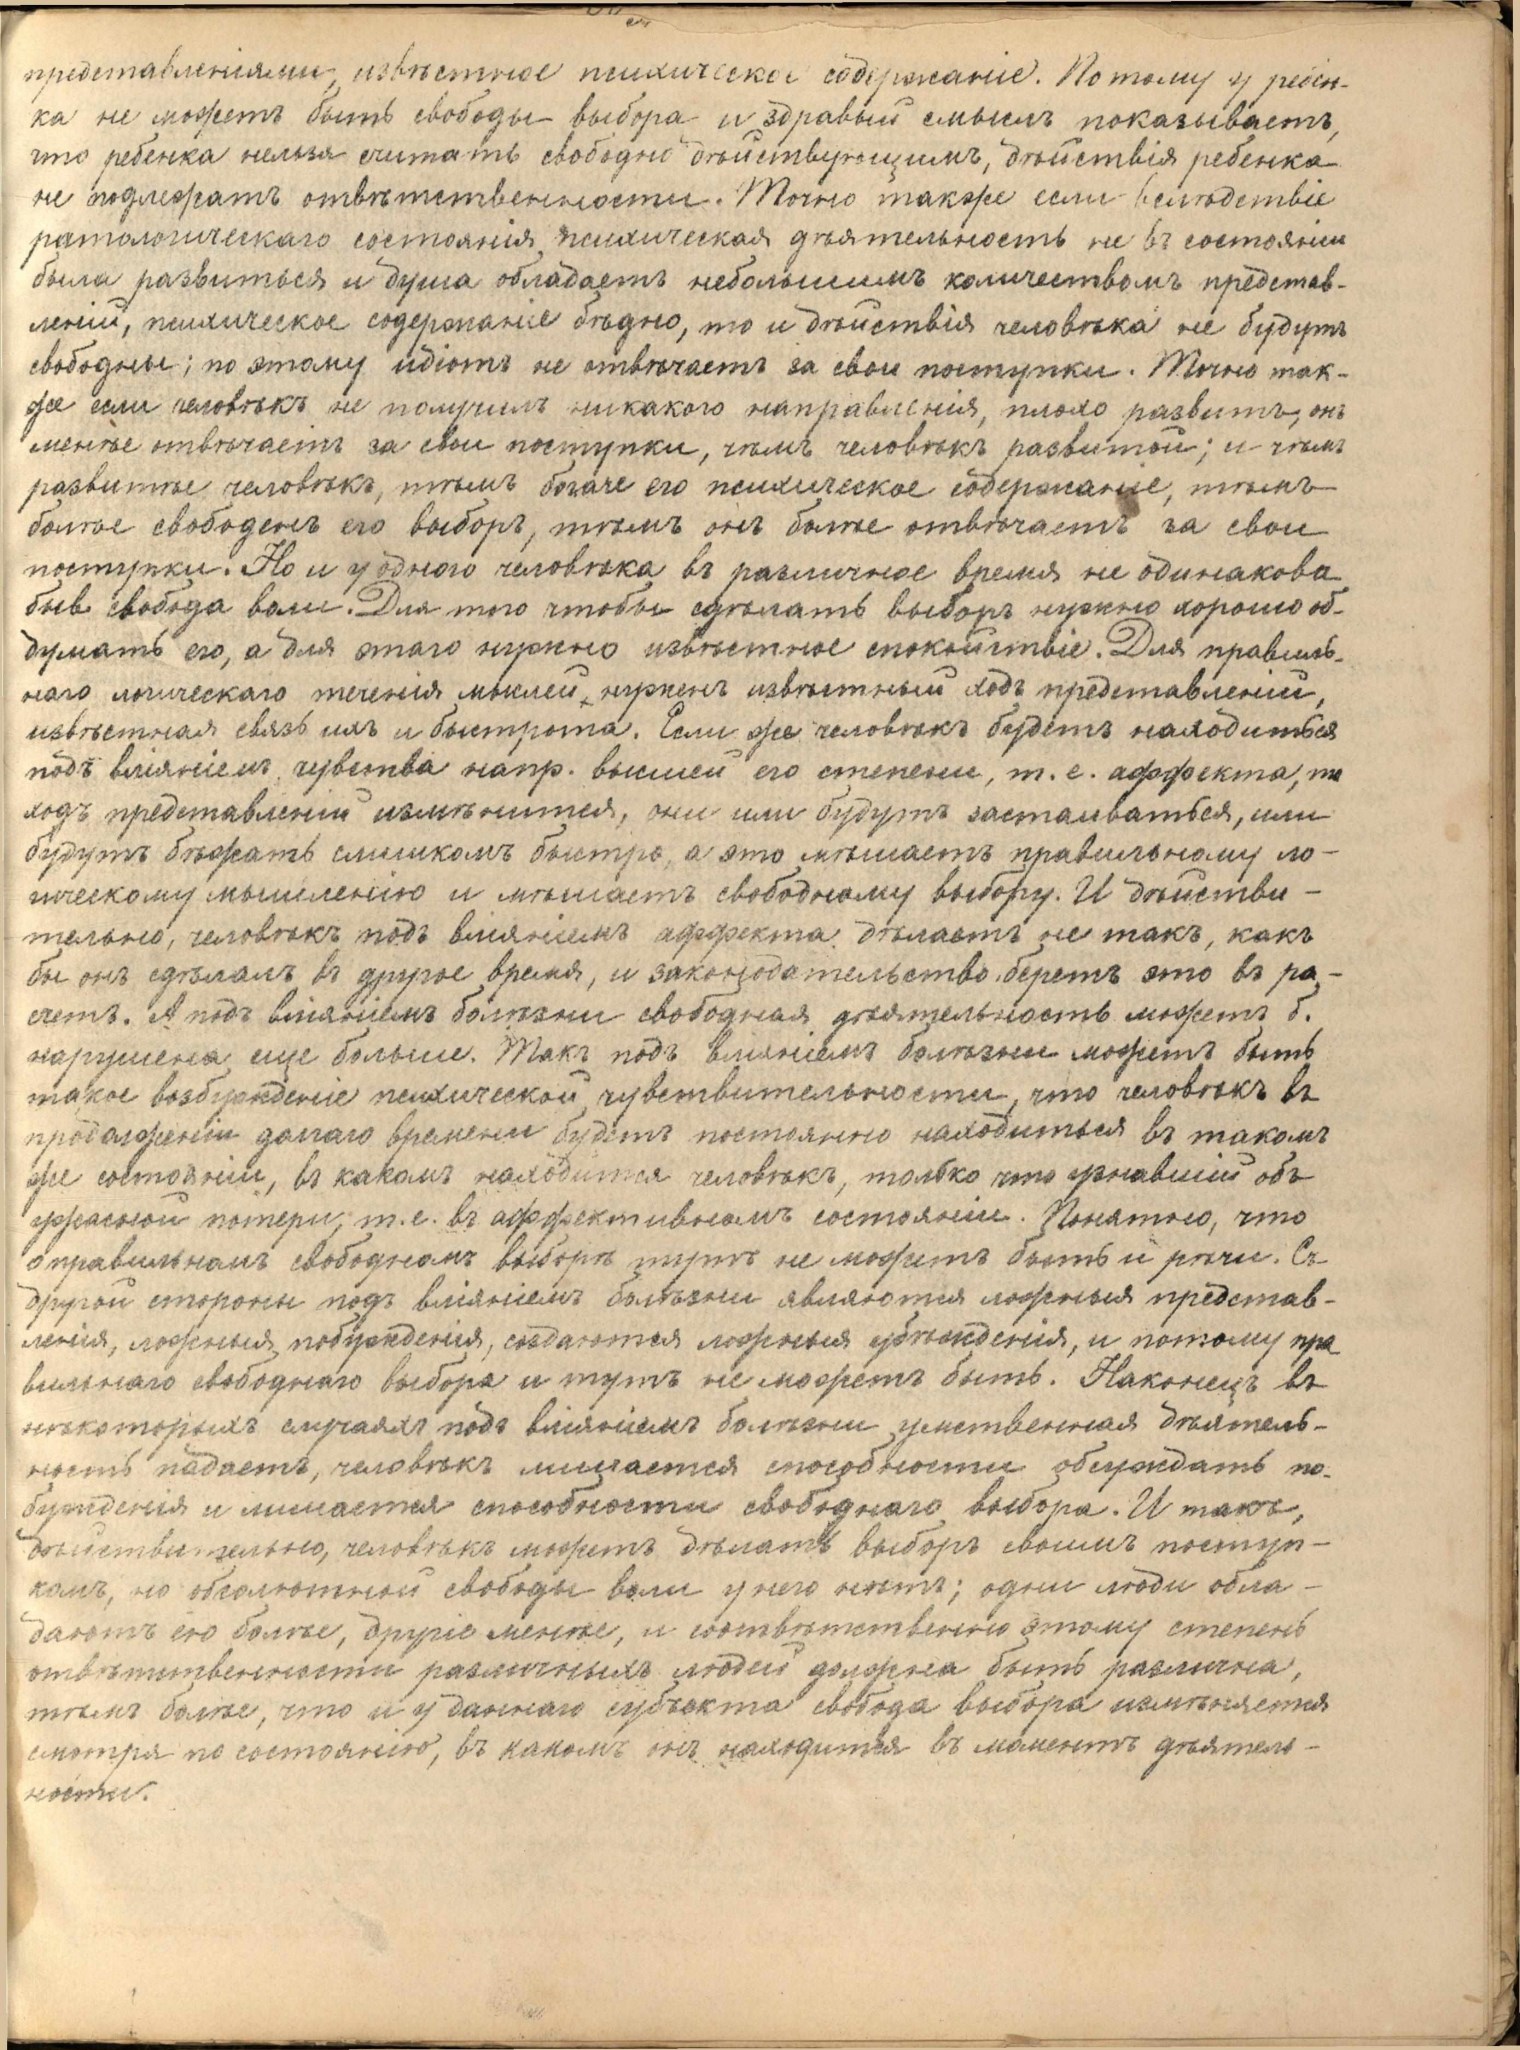 представленіями, извѣстное психическое содержаніе. Потому у ребен-
ка не можетъ быть свободы выбора и здравый смыслъ показываетъ,
что ребенка нельзя считать свободно дѣйствующимъ, дѣйствія ребенка
не подлежатъ отвѣтственности. Точно также если вслѣдствіе
патологическаго состоянія психическая дѣятельность не въ состояніи
была развиться и душа обладаетъ небольшимъ количествомъ представ-
леній, психическое содержаніе бѣдно, то и дѣйствія человѣка не будутъ
свободны; по этому идіотъ не отвѣчаетъ за свои поступки. Точно так-
же если человѣкъ не получилъ никакого направленія, плохо развитъ, онъ
менѣе отвѣчаетъ за свои поступки, чѣмъ человѣкъ развитой; и чѣмъ
развитѣе человѣкъ, тѣмъ богаче его психическое содержаніе, тѣмъ
болѣе свободенъ его выборъ, тѣмъ онъ болѣе отвѣчаетъ за свои
поступки. Но и у одного человѣка въ различное время не одинакова
быв свобода воли. Для того чтобы сдѣлать выборъ нужно хорошо об-
думать его, а для этаго нужно извѣстное спокойствіе. Для правиль-
наго логическаго теченія мыслей, нуженъ извѣстный ходъ представленій,
извѣстная связь ихъ и быстрота. Если же человѣкъ будетъ находиться
подъ вліяніемъ чувства напр. высшей его степени, т. е. аффекта, то
ходъ представленій измѣнится, они или будутъ застаиваться, или
будутъ бѣжать слишкомъ быстро, а это мѣшаетъ правильному ло-
гическому мышленію и мѣшаетъ свободному выбору. И дѣйстви-
тельно, человѣкъ подъ вліяніемъ аффекта дѣлаетъ не такъ, какъ
бы онъ сдѣлалъ въ другое время, и законодательство беретъ это въ ра-
счетъ. А подъ вліяніемъ болѣзни свободная дѣятельность можетъ б.
нарушена еще больше. Такъ подъ вліяніемъ болѣзни можетъ быть
такое возбужденіе психической чувствительности, что человѣкъ въ
продолженіи долгаго времени будетъ постоянно находиться въ такомъ
же состояніи, въ какомъ находится человѣкъ, только что узнавшій объ
ужасной потери, т. е. въ аффективномъ состояніи. Понятно, что
о правильномъ свободномъ выборѣ тутъ не можетъ быть и рѣчи. Съ
другой стороны подъ вліяніемъ болѣзни являются ложныя представ-
ленія, ложныя побужденія, создаются ложныя убѣжденія, и потому пра
вильнаго свободнаго выбора и тутъ не можетъ быть. Наконецъ въ
нѣкоторыхъ случаяхъ подъ вліяніемъ болѣзни умственная дѣятель-
ность падаетъ, человѣкъ лишается способности обсуждать по-
бужденія и лишается способности свободнаго выбора. И такъ,
дѣйствительно, человѣкъ можетъ дѣлать выборъ своимъ поступ-
камъ, но абсолютной свободы воли у него нѣтъ; одни люди обла-
даютъ ею болѣе, другіе менѣе, и соотвѣтственно этому степень
отвѣтственности различныхъ людей должна быть различна,
тѣмъ болѣе, что и у даннаго субъекта свобода выбора измѣняется
смотря по состоянію, въ какомъ онъ находится въ моментъ дѣятель-
ности.